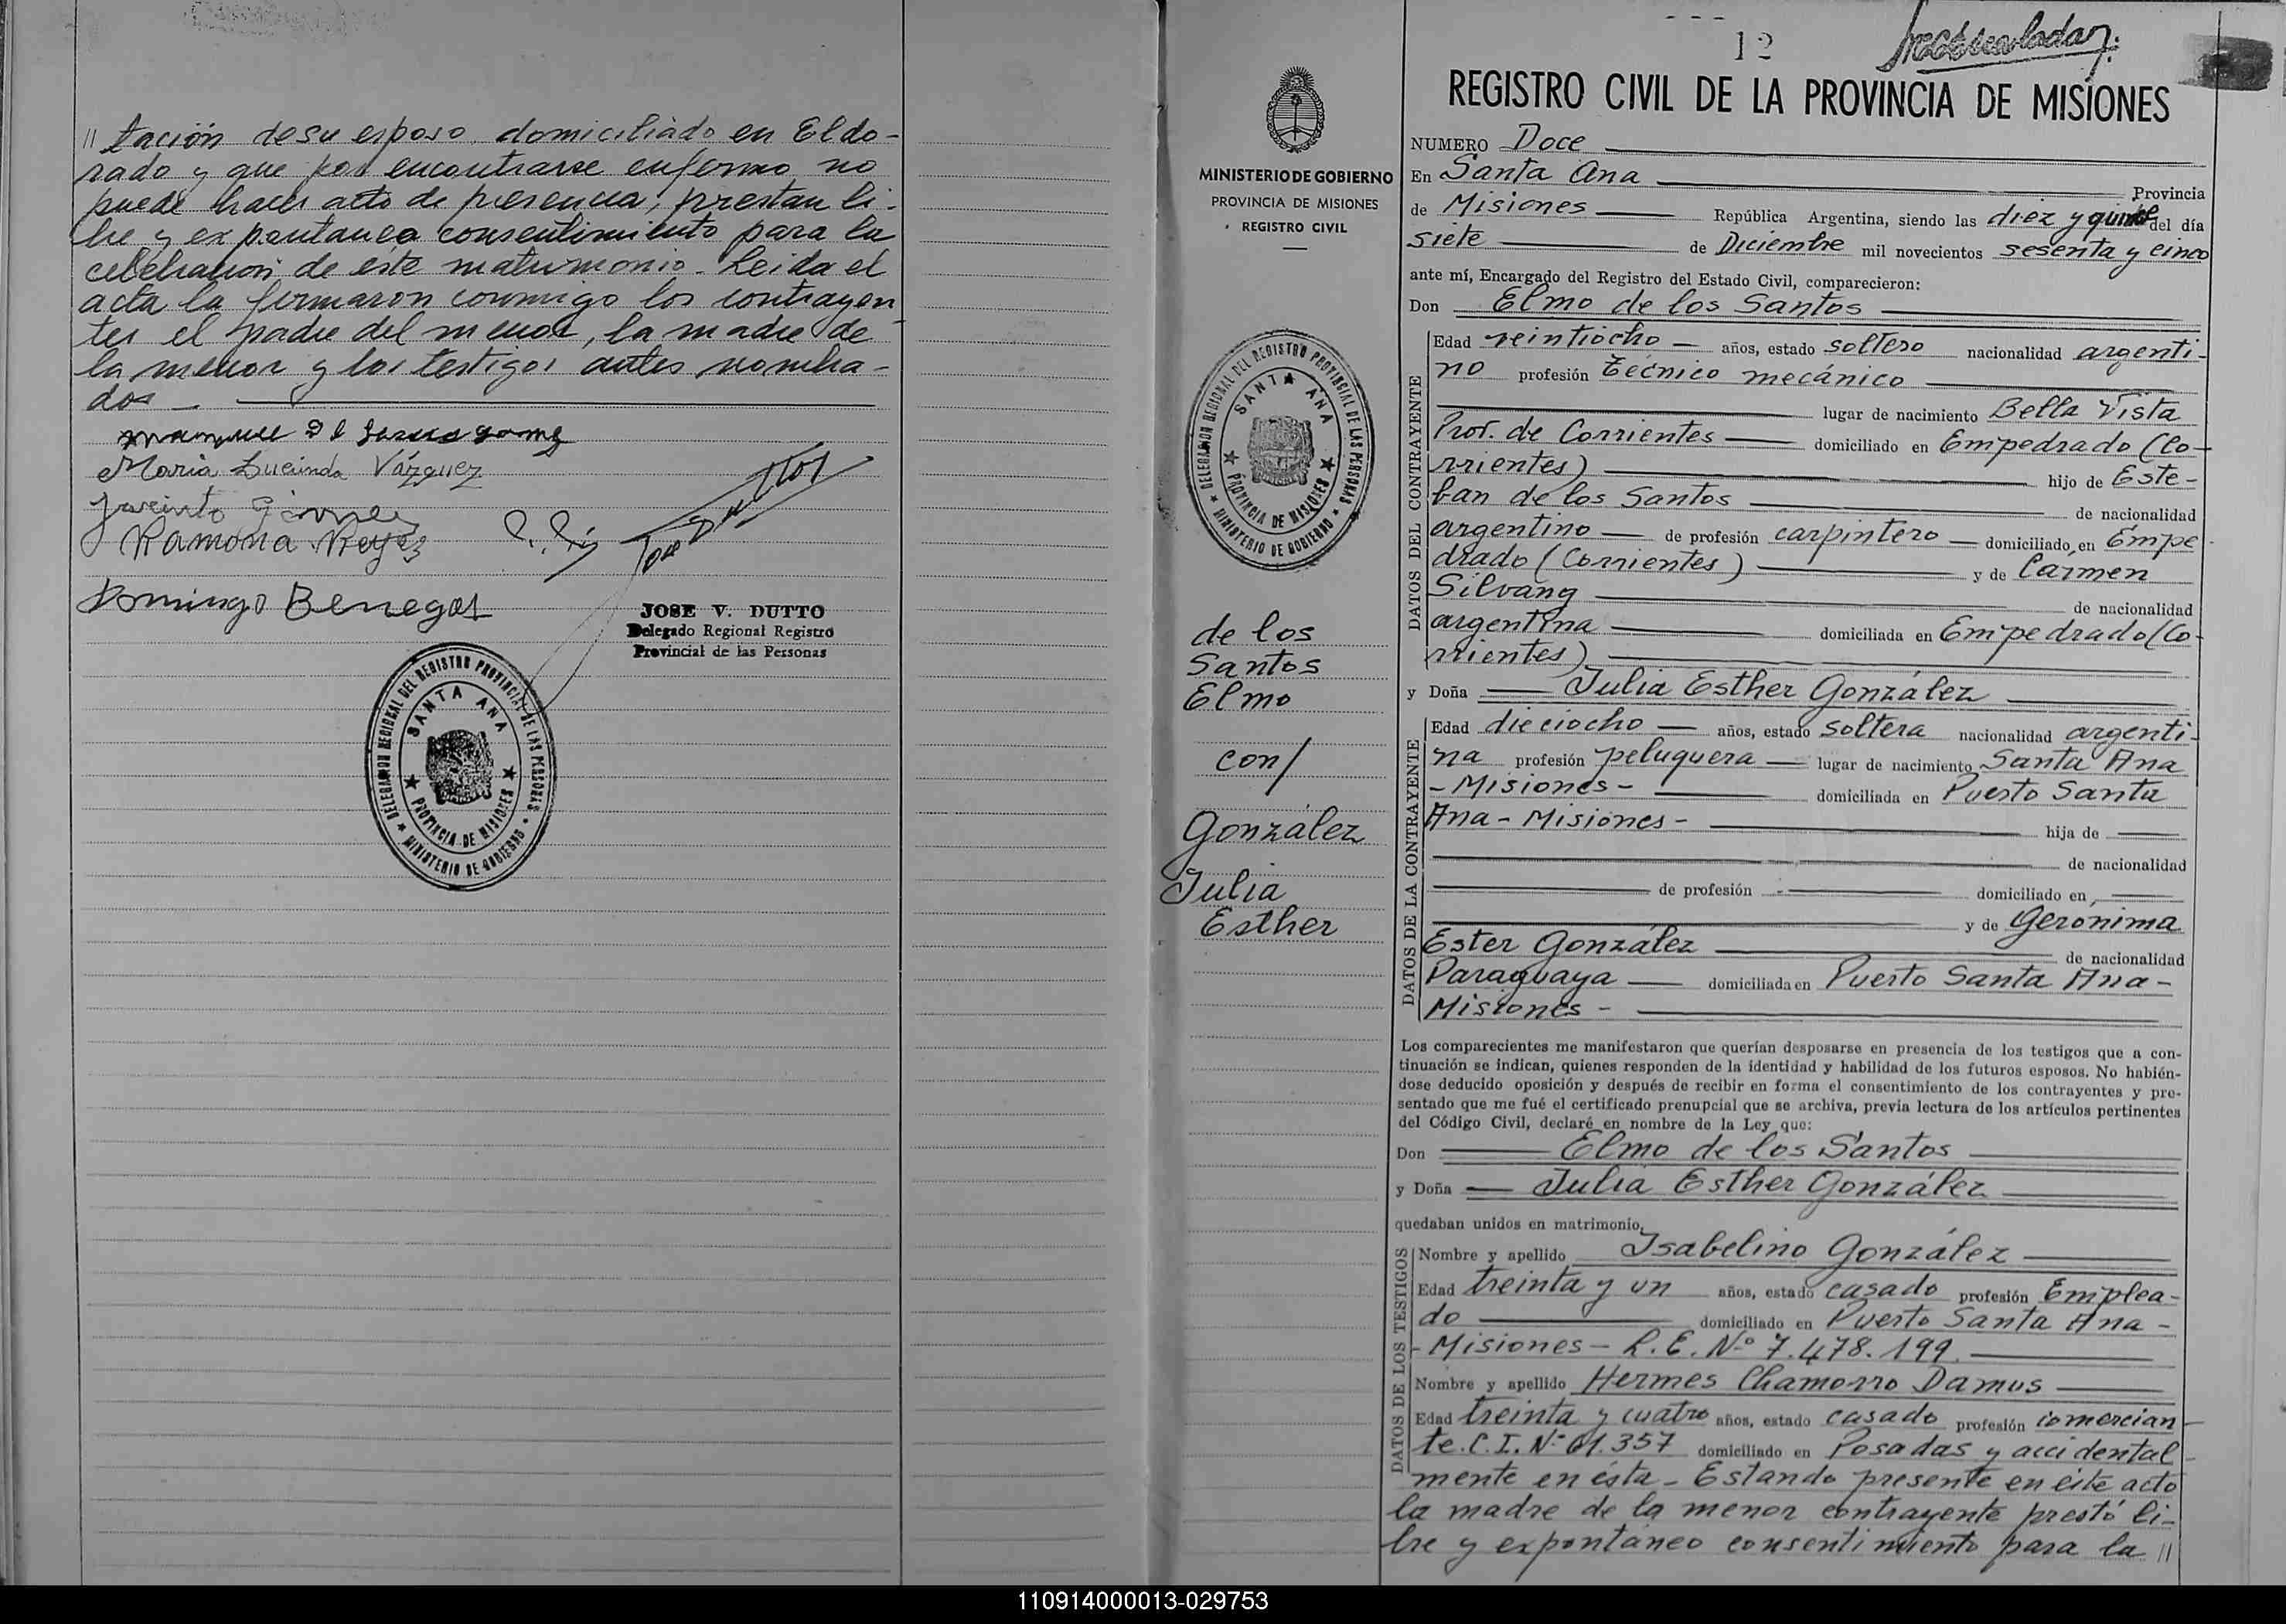 // tación de su esposo, domiciliado en Eldo-
rado y que por encontrarse enfermo no
puede hacer acto de presencia, prestan li-
bre y expontaneo consentimiento para la
celebración de este matrimonio. Leida el
acta la firmaron conmigo los contrayen-
tes el padre del menor, la madre de
la menor y los testigos antes nombra-
dos —
Maria Lucinda Vázquez
Jacinto Gómez
Ramona Reyes
Domingo Benegas
JOSE V. DUTTO
Delegado Regional Registro
Provincial de las Personas
DELEGACION REGIONAL DEL REGISTRO PROVINCIAL DE LAS PERSONAS
SANTA ANA
PROVINCIA DE MISIONES
MINISTERIO DE GOBIERNO
12
MINISTERIO DE GOBIERNO
PROVINCIA DE MISIONES
REGISTRO CIVIL
DELEGACION REGIONAL DEL REGISTRO PROVINCIAL DE LAS PERSONAS
SANTA ANA
PROVINCIA DE MISIONES
MINISTERIO DE GOBIERNO
de los
Santos
Elmo
con/
González
Julia
Esther
REGISTRO CIVIL DE LA PROVINCIA DE MISIONES
NUMERO Doce
En Santa Ana Provincia
de Misiones República Argentina, siendo las diez y quince del día
siete de Diciembre mil novecientos sesenta y cinco
ante mí, Encargado del Registro del Estado Civil, comparecieron:
Don Elmo de los Santos
DATOS DEL CONTRAYENTE
Edad veintiocho — años, estado soltero nacionalidad argenti-
no profesión técnico mecánico
lugar de nacimiento Bella Vista
Prov. de Corrientes — domiciliado en Empedrado (Co-
rrientes) hijo de Este-
ban de los Santos de nacionalidad
argentino — de profesión carpintero — domiciliado en Empe-
drado (Corrientes) y de Carmen
Silvana de nacionalidad
argentina domiciliada en Empedrado (Co-
rrientes)
y Doña — Julia Esther González
DATOS DE LA CONTRAYENTE
Edad dieciocho — años, estado soltera nacionalidad argenti-
na profesión peluquera — lugar de nacimiento Santa Ana
- Misiones - domiciliada en Puerto Santa
Ana - Misiones - hija de
de nacionalidad
de profesión domiciliado en
y de Geronima
Ester González de nacionalidad
Paraguaya — domiciliada en Puerto Santa Ana -
Misiones -
Los comparecientes me manifestaron que querían desposarse en presencia de los testigos que a con-
tinuación se indican, quienes responden de la identidad y habilidad de los futuros esposos. No habién-
dose deducido oposición y después de recibir en forma el consentimiento de los contrayentes y pre-
sentado que me fué el certificado prenupcial que se archiva, previa lectura de los artículos pertinentes
del Código Civil, declaré en nombre de la Ley que:
Don Elmo de los Santos
y Doña — Julia Esther González
quedaban unidos en matrimonio.
DATOS DE LOS TESTIGOS
Nombre y apellido Isabelino González
Edad treinta y un años, estado casado profesión Emplea-
do domiciliado en Puerto Santa Ana -
- Misiones - L.E. Nº 7.478.199.
Nombre y apellido Hermes Chamorro Damus
Edad treinta y cuatro años, estado casado profesión comercian-
te. C.I. Nº 61.357 domiciliado en Posadas y accidental-
mente en ésta - Estando presente en este acto
la madre de la menor contrayente prestó li-
bre y expontáneo consentimiento para la //
110914000013-029753